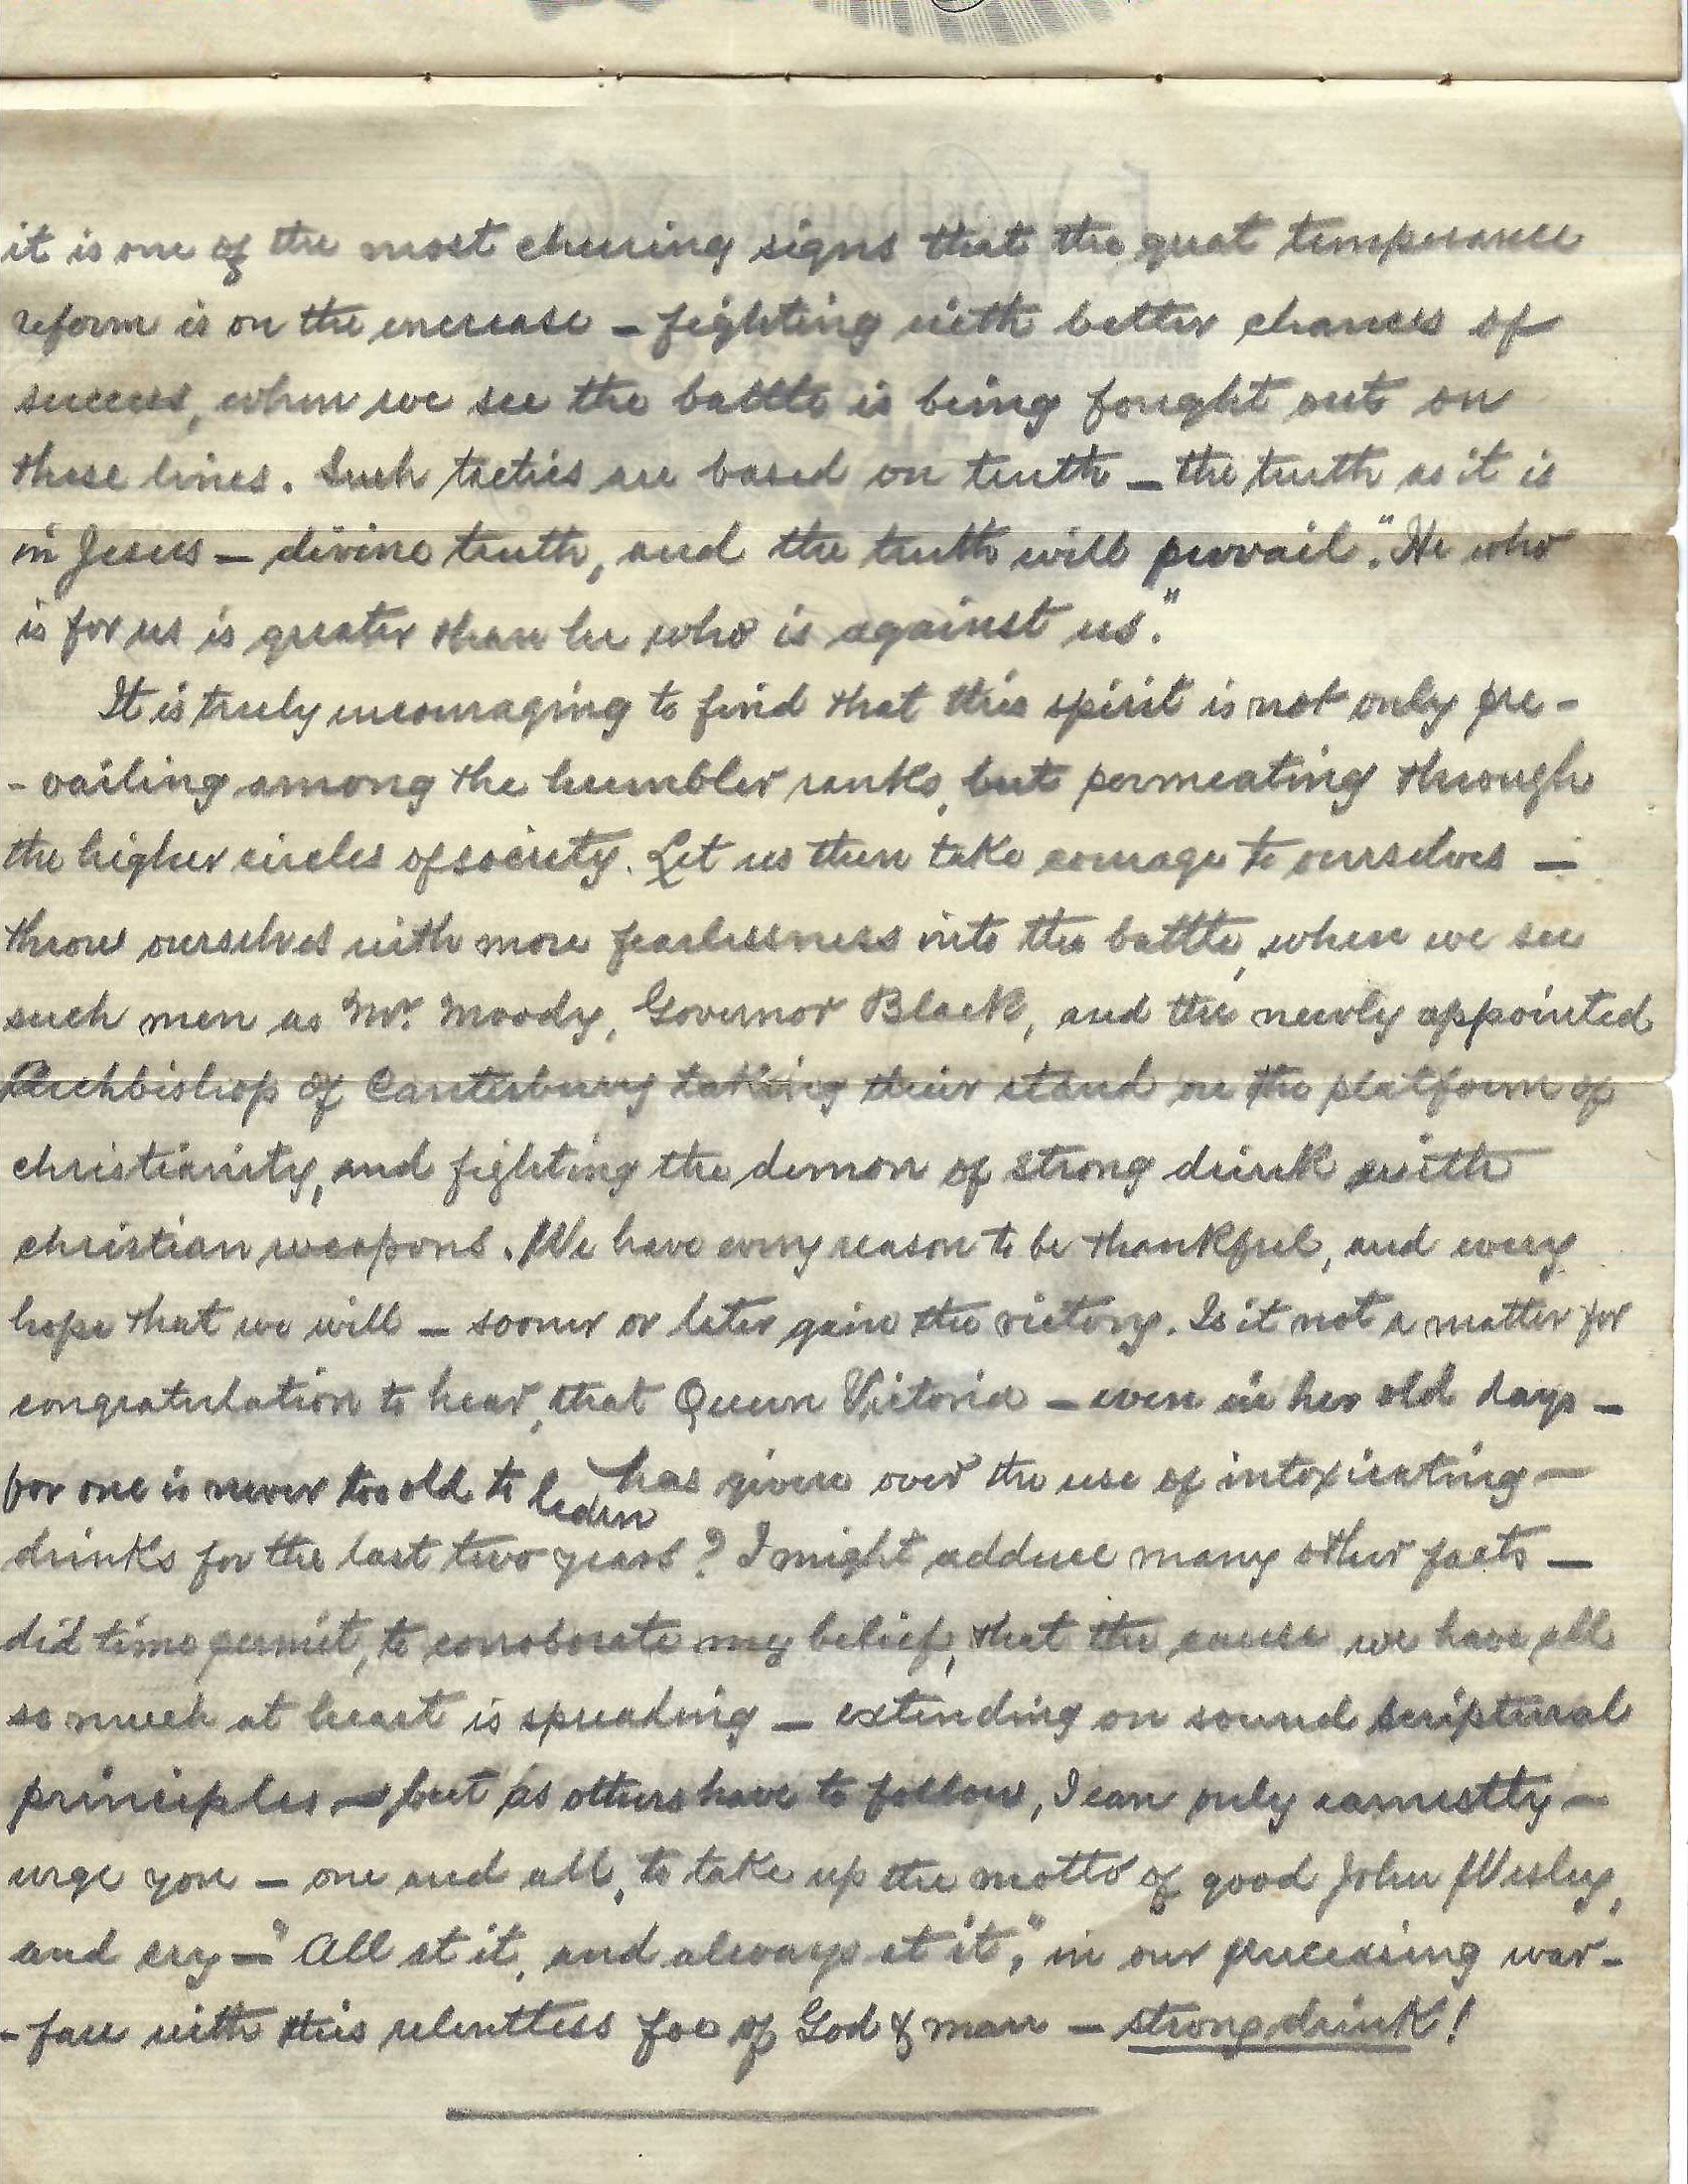 it is one of the most cheering signs that the great temperance
reform is on the encrease – fighting with better chances of
success, when we see the battle is being fought out on
these lines. Such tactics are based on truth – the truth as it is
in Jesus – divine truth, and the truth will prevail. "He who
is for us is greater than he who is against us."
It is truly encouraging to find that this spirit is not only pre-
-vailing among the humbler ranks, but permeating through
the higher circles of society. Let us then take courage to ourselves –
throw ourselves with more fearlessness into the battle, when we see
such men as Mr. Moody, Governor Black, and the newly appointed
Archbishop of Canterbury taking their stand on the platform of
christianity, and fighting the demon of strong drink with
christian weapons. We have every reason to be thankful, and every
hope that we will – sooner or later gain the victory. Is it not a matter for
congratulation to hear, that Queen Victoria – even in her old days –
for one is never too old to learn has given over the use of intoxicating –
drinks for the last two years? I might adduce many other facts –
did time permit, to corroborate my belief, that the cause we have all
so much at heart is spreading – extending on sound scriptural
principles – but as others have to follow, I can only earnestly –
urge you – one and all, to take up the motto of good John Wesley,
and cry – "All at it, and always at it," in our unceasing war-
-fare with this relentless foe of God & man – strong drink!